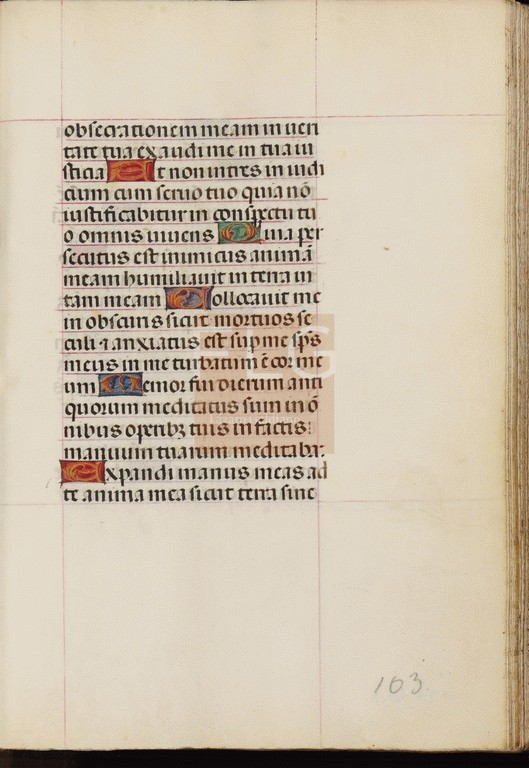 obsecrationem meam in veri
tate tua exaudi me in tua iu
sticia Et non intres in iudi
cium cum seruo tuo quia nō
iustificabitur in conspectu tu
o omnis viuens Quia per
secutus est inimicus animā
meam humiliauit in terra ui
tam meam Collocauit me
in obscuris sicut mortuos se
culi ⁊ anxiatus est sup me sp̄s
meus in me turbatum ē cor me
um Memor fui dierum anti
quorum meditatus sum in ō
nibus operibꝫ tuis in factis
manuum tuarum meditabar
Expandi manus meas ad
te anima mea sicut terra sine
103